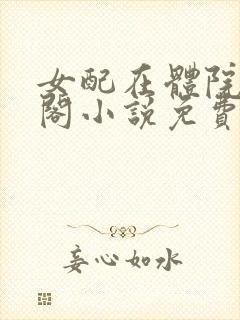 女配在體院
閣小說免費
妄心如水